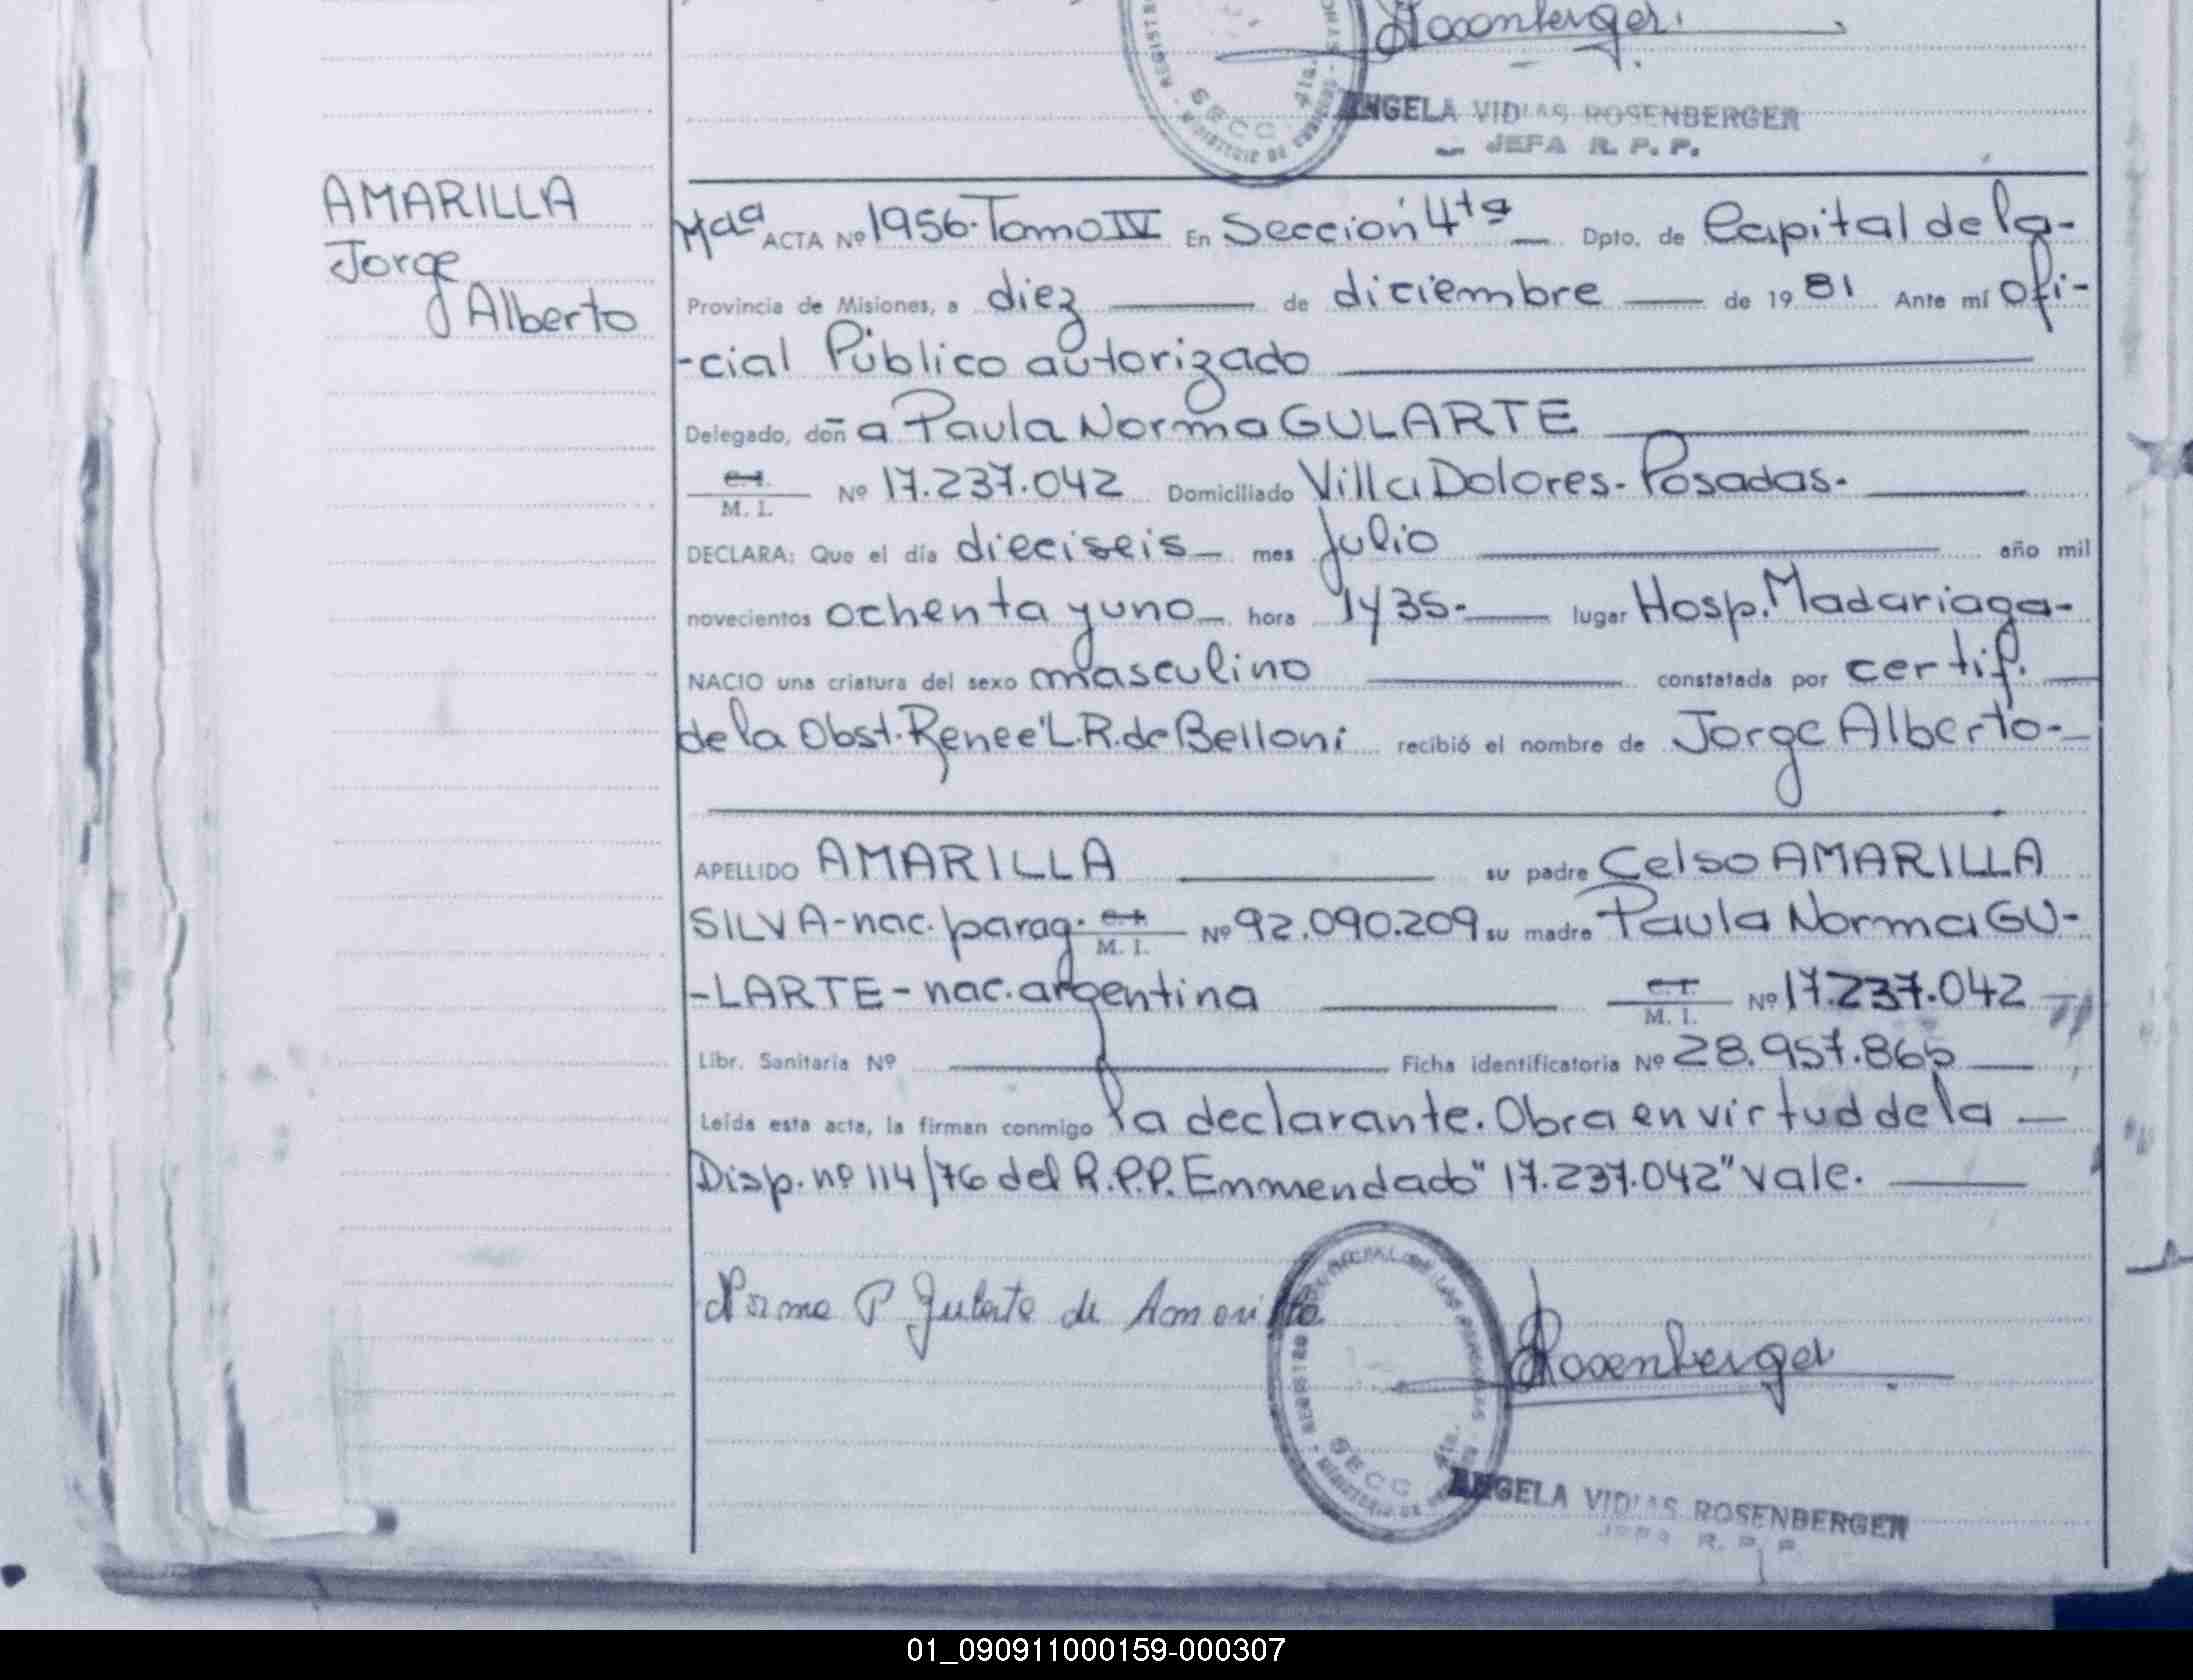 Rosenberger
ANGELA VIDIAS ROSENBERGER
JEFA R. P. P.
SECC 4ta.
AMARILLA
Jorge
Alberto
Mdª ACTA Nº 1956. Tomo IV En Sección 4ta Dpto. de Capital de la-
Provincia de Misiones, a diez de diciembre de 1981 Ante mí ofi-
-cial Público autorizado
Delegado, doña Paula Norma GULARTE
C.I. M. I. Nº 17.237.042 Domiciliado Villa Dolores-Posadas.
DECLARA: Que el día dieciseis mes julio año mil
novecientos ochenta y uno hora 1y35- lugar Hosp. Madariaga-
NACIO una criatura del sexo masculino constatada por certif.
de la Obst. Renee L.R. de Belloni recibió el nombre de Jorge Alberto-
APELLIDO AMARILLA su padre Celso AMARILLA
SILVA-nac. parag. C.I. M. I. Nº 92.090.209 su madre Paula Norma GU-
-LARTE-nac. argentina C.I. M. I. Nº 17.237.042
Libr. Sanitaria Nº Ficha identificatoria Nº 28.957.865
Leída esta acta, la firman conmigo la declarante. Obra en virtud de la
Disp. nº 114/76 del R.P.P. Enmendado "17.237.042" vale.
Norma P Gularte de Amarilla
Rosenberger
SECC 4ta.
ANGELA VIDIAS ROSENBERGER
JEFA R. P. P.
01_090911000159-000307